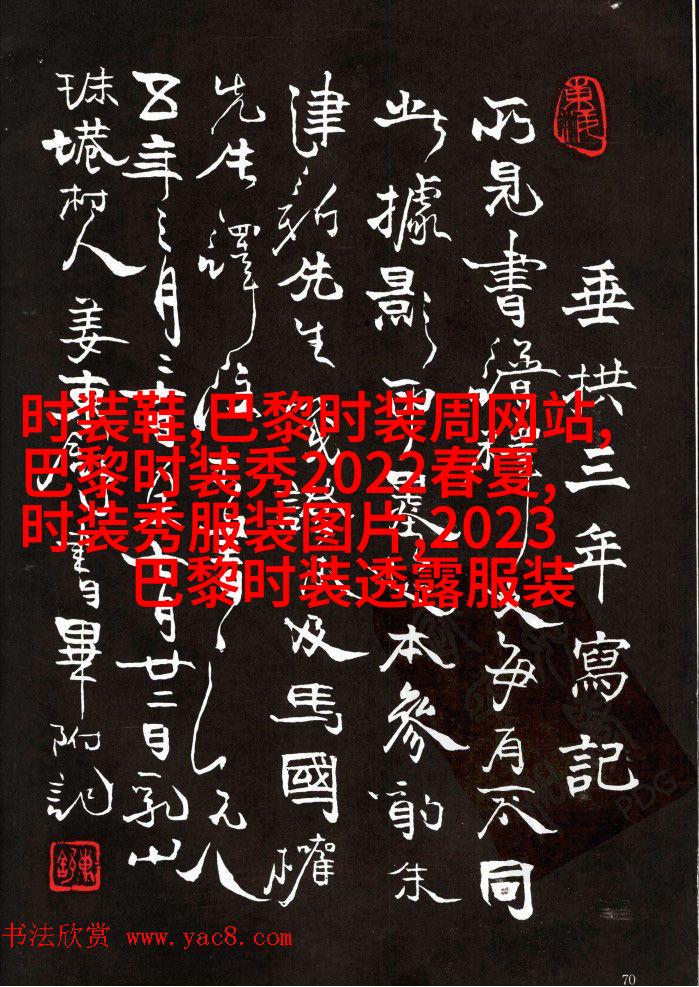 垂拱三年寫記
所見書譜釋文每有不同
此據影印墨本參酌朱
建新先生證及馬國權
先生譯元人
五年三月七月廿二日乳山
珠塔村人姜东舒書畢附記
时装鞋,巴黎时装周网站,
巴黎时装秀2022春夏,
时装秀服装图片,2023
巴黎时装透露服装
书法欣赏 www.yac8.com
PDG
70